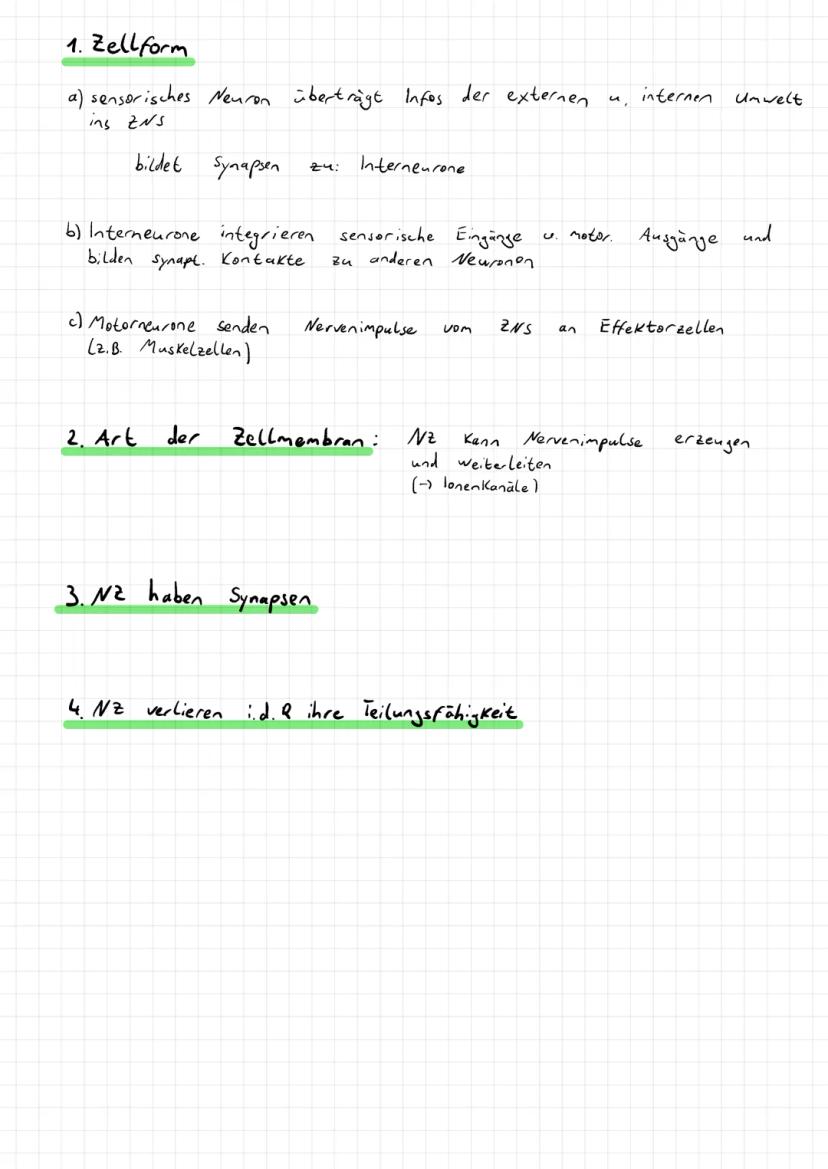 1. Zellform
a) sensorisches Neuron überträgt Infos der externen u. internen Umwelt
ins ZNS
bildet Synapsen zu: Interneurone
b) Interneurone integrieren sensorische Eingänge u. motor. Ausgänge und
bilden synapt. Kontakte zu anderen Neuronen
c) Motorneurone senden Nervenimpulse vom ZNS an Effektorzellen
(z.B. Muskelzellen)
2. Art der Zellmembran: NZ kann Nervenimpulse erzeugen
und weiterleiten
(→ Ionenkanäle)
3. NZ haben Synapsen
4. NZ verlieren i.d.R ihre Teilungsfähigkeit